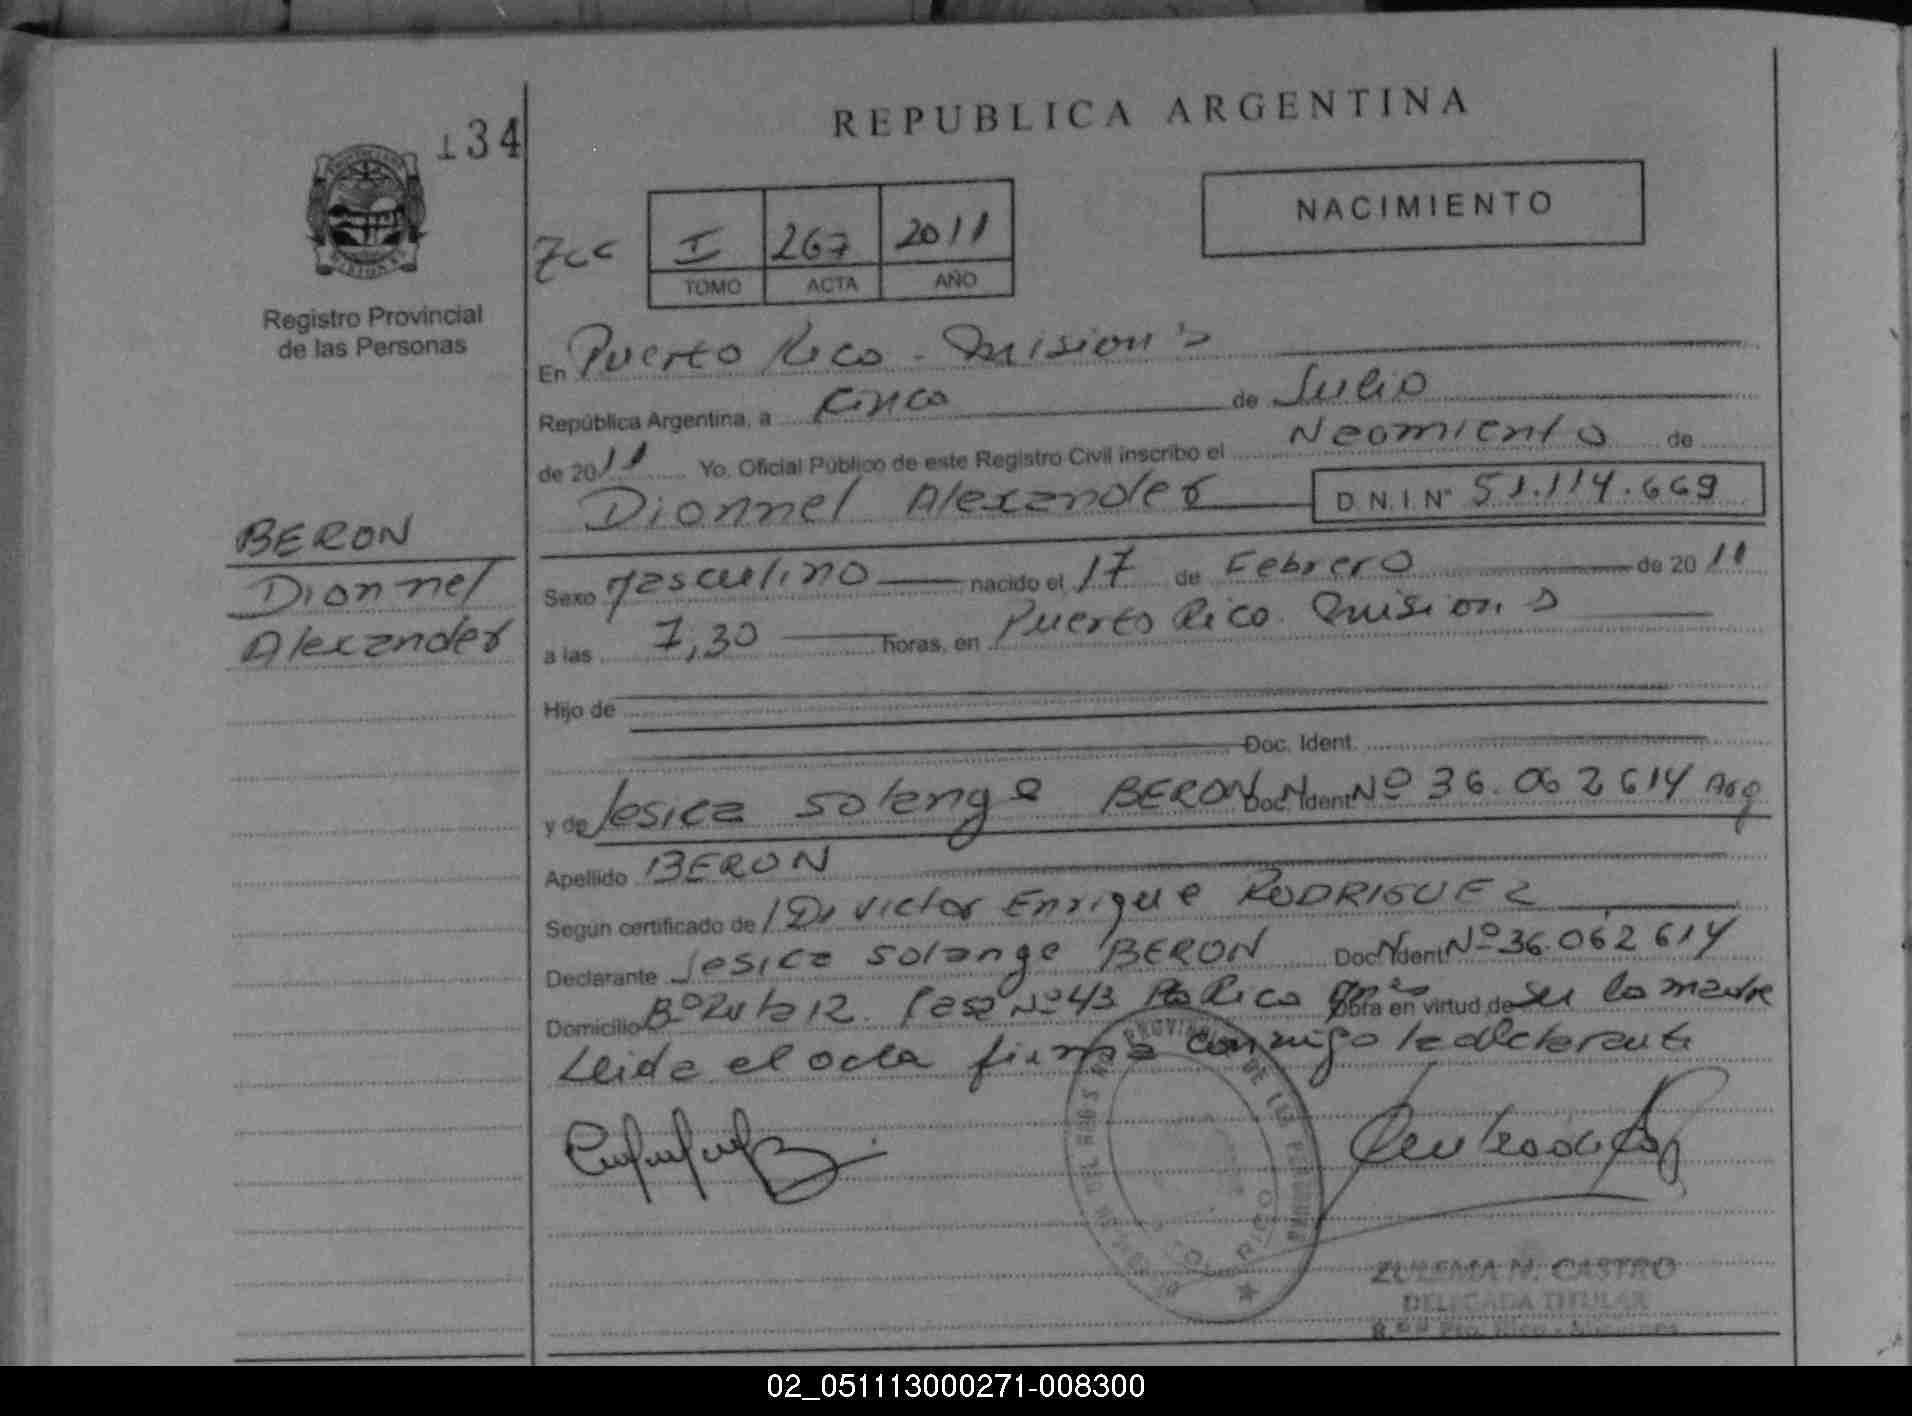 134
REPUBLICA ARGENTINA
NACIMIENTO
I 267 2011
TOMO ACTA AÑO
Registro Provincial
de las Personas
En Puerto Rico - Misiones
República Argentina, a Cinco de Julio
de 2011 Yo, Oficial Público de este Registro Civil inscribo el Nacimiento de
Dionnel Alexander D.N.I. Nº 51.114.669
BERON
Dionnel
Alexander
Sexo Masculino nacido el 17 de Febrero de 2011
a las 7,30 horas, en Puerto Rico. Misiones
Hijo de
Doc. Ident.
y de Jesica Solange BERON Doc. Ident. Nº 36.062614 Arg
Apellido BERON
Según certificado de Dr Victor Enrique RODRIGUEZ
Declarante Jesica Solange BERON Doc. Ident. Nº 36.062614
Domicilio Bº Ruta 12. Casa Nº 43 Pto Rico obra en virtud de ser la madre
Leida el acta firma conmigo la declarante
ZULEMA N. CASTRO
DELEGADA TITULAR
02_051113000271-008300